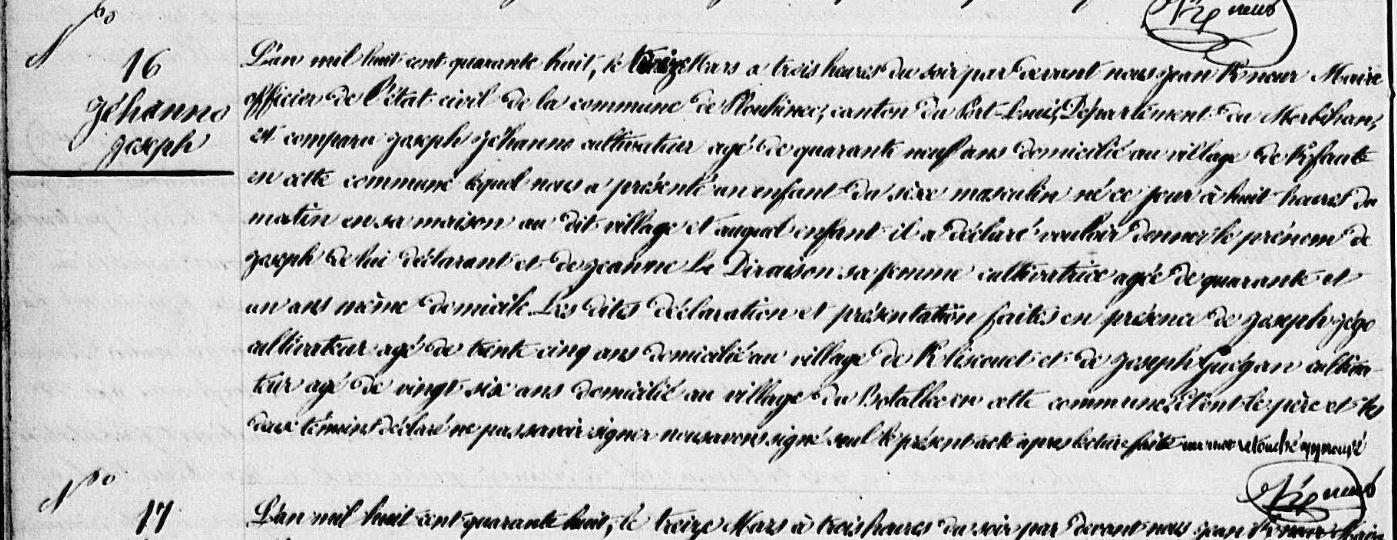 No
16
Jéhanno
joseph
L'an mil huit cent quarante huit, le treize Mars a trois heures du soir par devant nous jean Kneur Maire
officier de l'état civil de la commune de Plouhinec, canton du Port-Louis, Département du Morbihan,
est comparu joseph jéhanno cultivateur agé de quarante neuf ans domicilié au village de
en cette commune lequel nous a présenté un enfant du sèxe masculin né ce jour à huit heures du
matin en sa maison au dit village et auquel enfant il a déclaré vouloir donner le prénom de
joseph de lui déclarant et de jeanne Le Dirasson sa femme cultivatrice agée de quarante et
un ans même domicile Les dites déclaration et présentation faites en présence de joseph jégo
cultivateur agé de trente cinq ans domicilié au village de et de joseph Guégan cultiva-
teur agé de vingt six ans domicilié au village du en cette commune, et ont le père et les
deux témoins déclaré ne pas savoir signer nous avons signé seul le présent acte après lecture faite un mot retouché approuvé
No
17
L'an mil huit cent quarante huit, le treize Mars à trois heures du soir par devant nous jean Kneur Maire